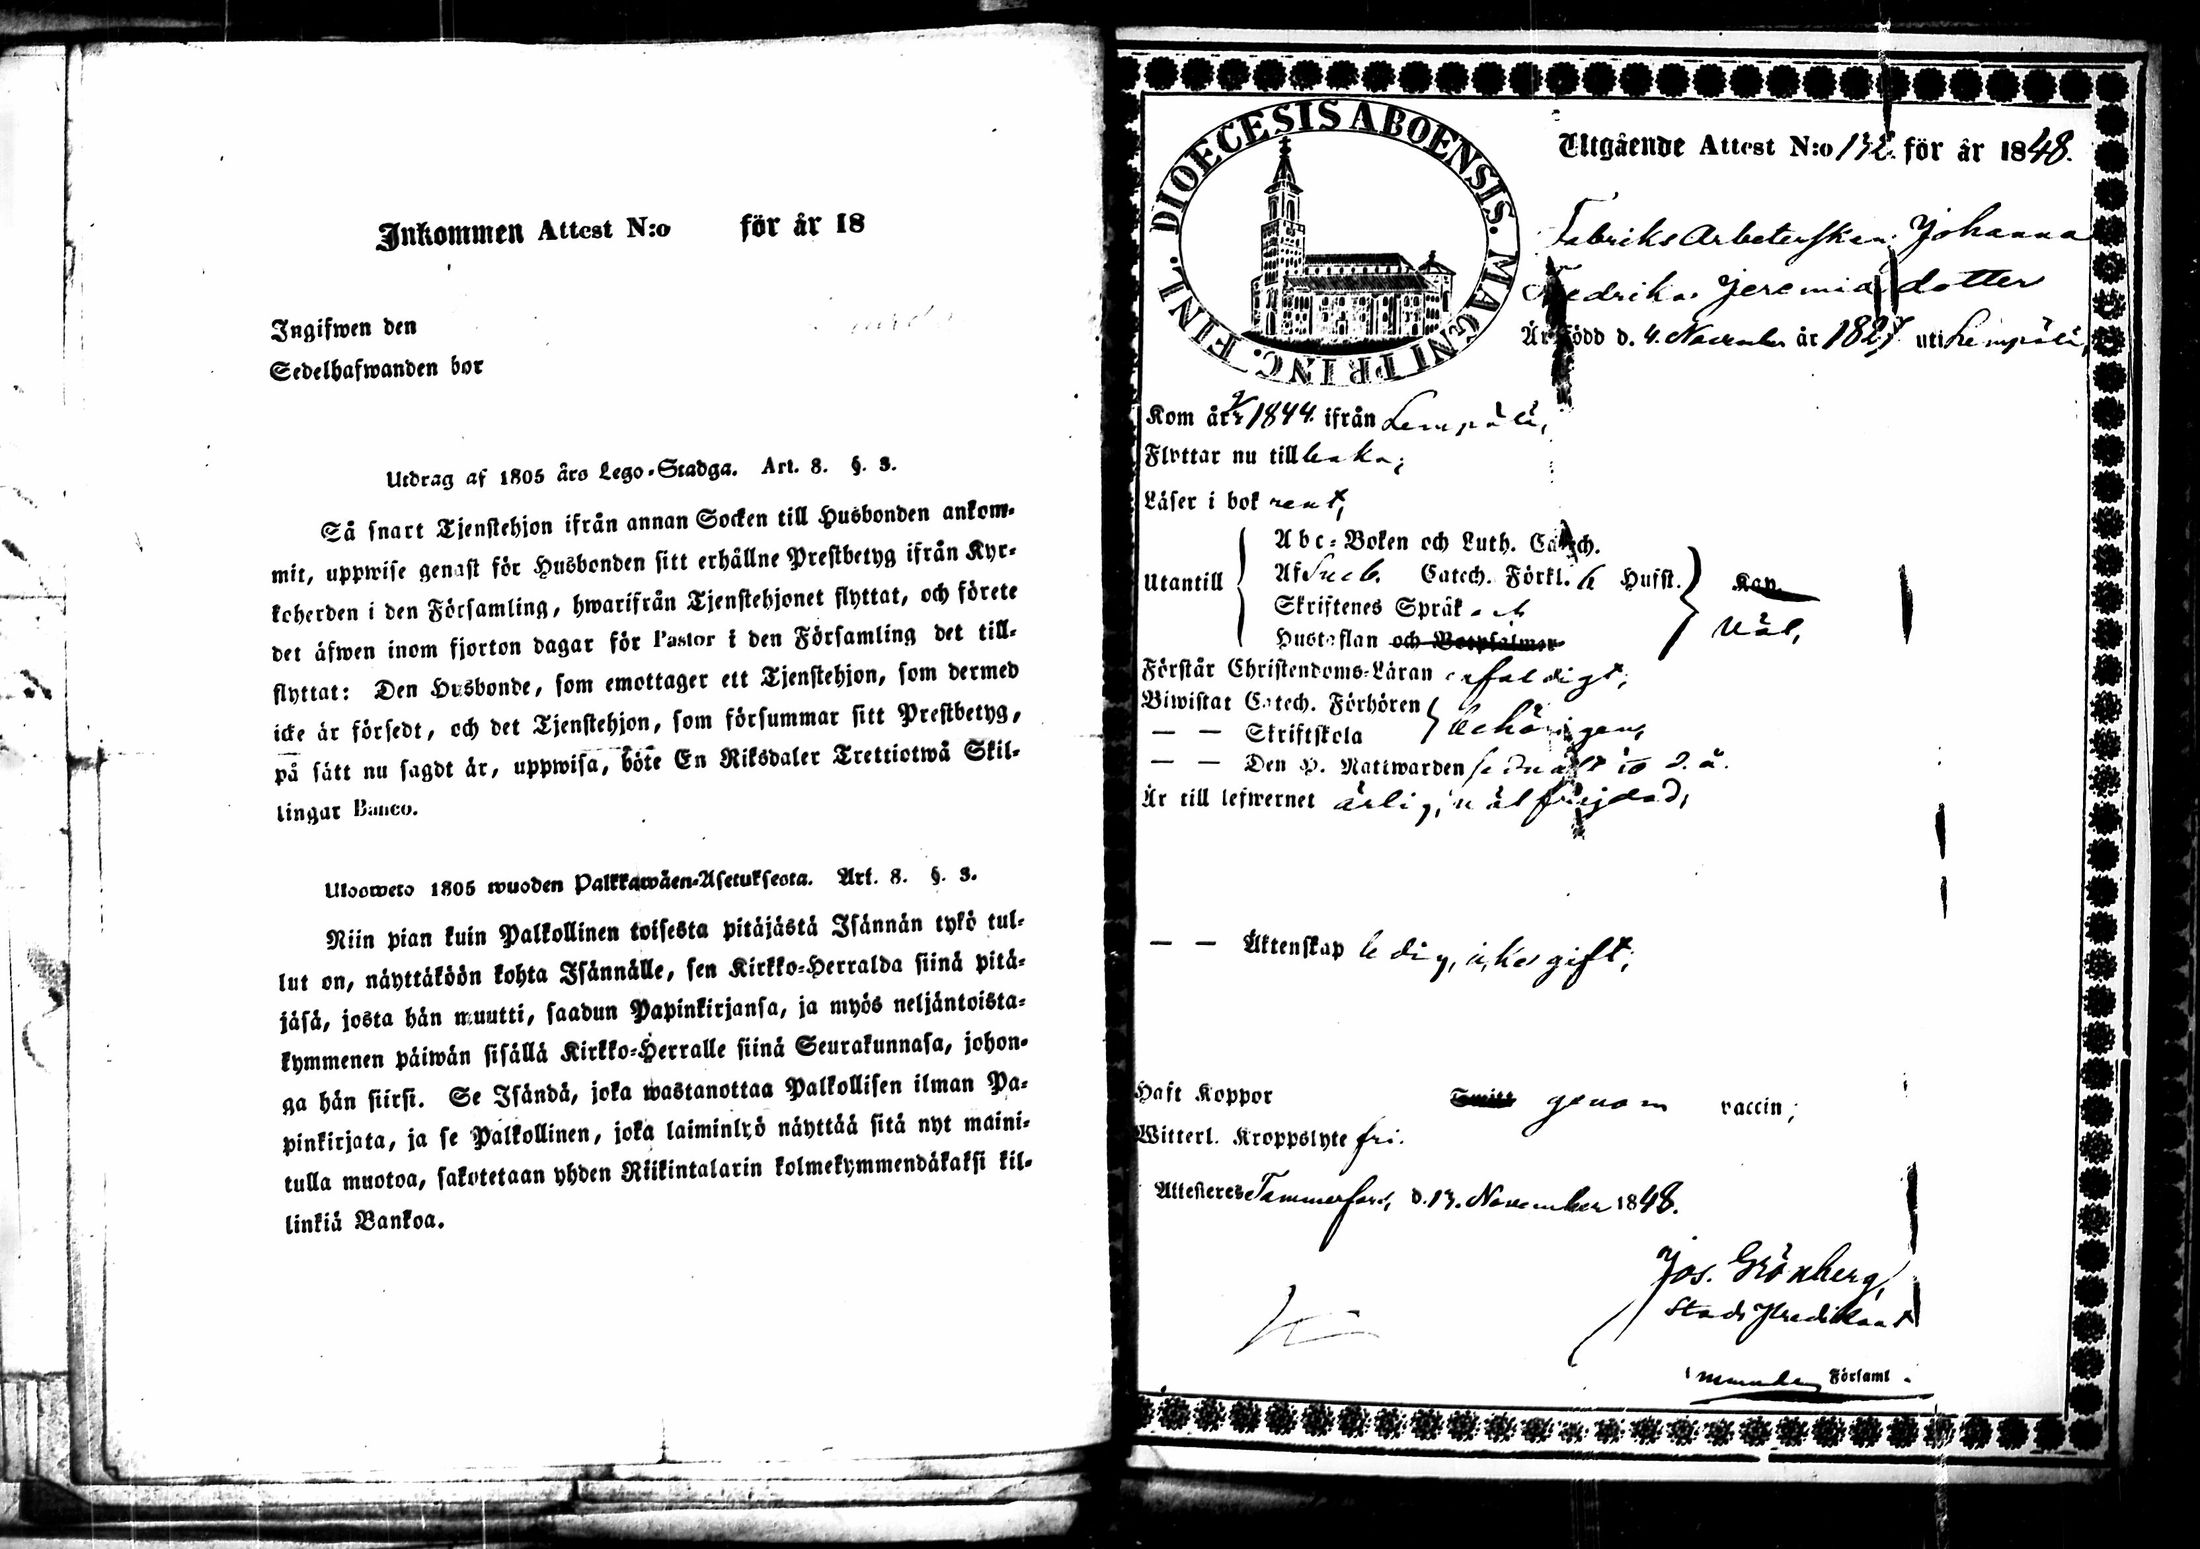 Inkommen Attest N:o för år 18
Ingifwen den
Sedelhafwanden bor
Utdrag af 1805 års Lego-Stadga. Art. 8. §. 3.
Så snart Tjenstehjon ifrån annan Socken till Husbonden ankom-
mit, uppwise genast för Husbonden sitt erhållne Prestbetyg ifrån Kyr-
koherden i den Församling, hwarifrån Tjenstehjonet flyttat, och förete
det äfwen inom fjorton dagar för Pastor i den Församling det till-
flyttat: Den Husbonde, som emottager ett Tjenstehjon, som dermed
icke är försedt, och det Tjenstehjon, som försummar sitt Prestbetyg,
på sätt nu sagdt är, uppwisa, böte En Riksdaler Trettiotwå Skil-
lingar Banco.
Ulosweto 1805 wuoden Palkkawäen-Asetuksesta. Art. 8. §. 3.
Niin pian kuin Palkollinen toisesta pitäjästä Isännän tykö tul-
lut on, näyttäköön kohta Isännälle, sen Kirkko-Herralda siinä pitä-
jäsä, josta hän muutti, saadun Papinkirjansa, ja myös neljäntoista-
kymmenen päiwän sisällä Kirkko-Herralle siinä Seurakunnasa, johon-
ga hän siirsi. Se Isändä, joka wastanottaa Palkollisen ilman Pa-
pinkirjata, ja se Palkollinen, joka laiminlyö näyttää sitä nyt maini-
tulla muotoa, sakotetaan yhden Riikintalarin kolmekymmendäkaksi kil-
linkiä Bankoa.
DIOECESIS ABOENSIS. MAGNI PRINC. FINL.
Utgående Attest N:o 132. för år 1848.
Fabriks Arbeterskan Johanna
Fredrika Jeremiasdotter
Är född d. 4. November år 1827 uti Lempälä,
Kom år 1844. ifrån Lempälä,
Flyttar nu tillbaka;
Läser i bok rent,
Utantill
Abc-Boken och Luth. Catech.
Af Sveb. Catech. Förkl. Husst. Kap.
Skriftenes Språk och
Hustaflan och Botpsalmer
Väl,
Förstår Christendoms-Läran enfaldigt;
Biwistat Catech. Förhören
— — Skriftskola behörigen,
— — Den H. Nattwarden sednast
Är till lefwernet ärlig, väl frejdad,
— — Äktenskap ledig, icke gift;
Haft Koppor genom vaccin;
Witterl. Kroppslyte fri.
Attesteres Tammerfors, d. 13. November 1848.
Jos. Grönberg,
Stads Predikant
Församl